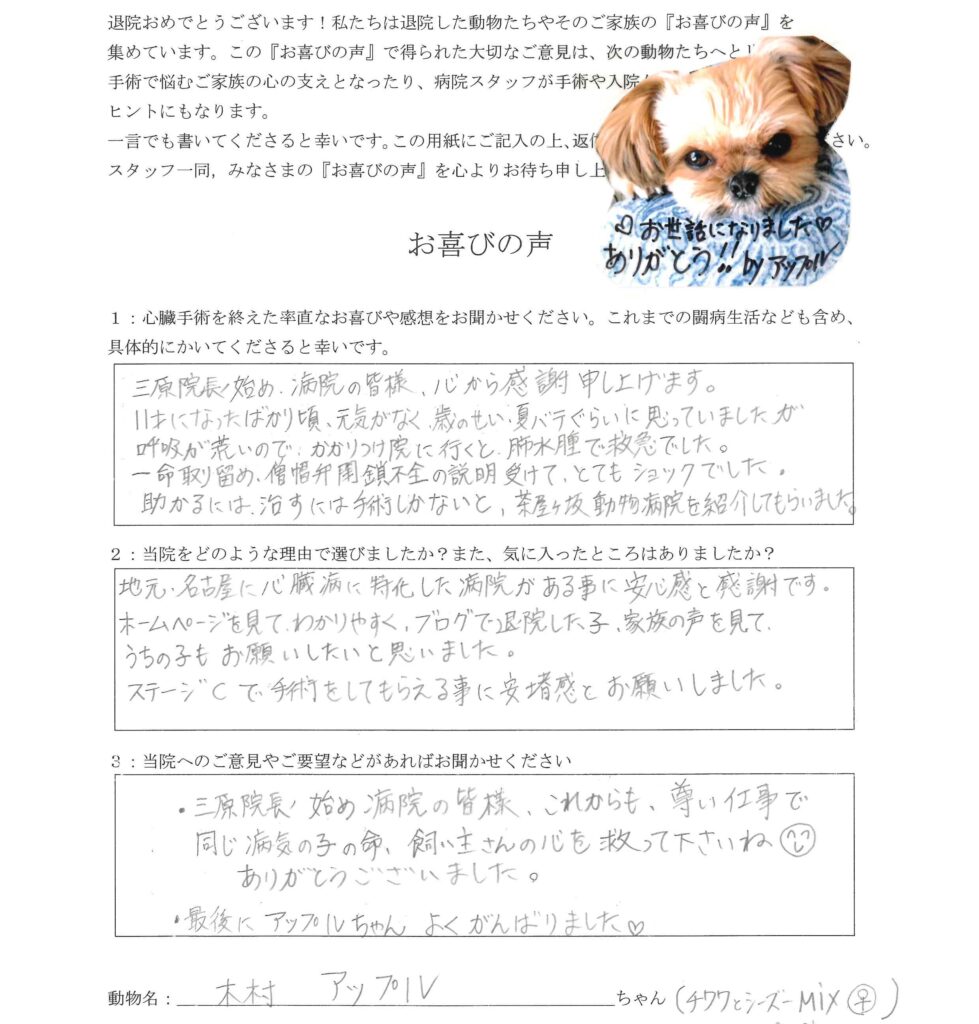 退院おめでとうございます！私たちは退院した動物たちやそのご家族の『お喜びの声』を
集めています。この『お喜びの声』で得られた大切なご意見は、次の動物たちへと
手術で悩むご家族の心の支えとなったり、病院スタッフが手術や入院
ヒントにもなります。
一言でも書いてくださると幸いです。この用紙にご記入の上、返信
さい。
スタッフ一同，みなさまの『お喜びの声』を心よりお待ち申し上
♡お世話になりました♡
ありがとう!! by アップル
お喜びの声
１：心臓手術を終えた率直なお喜びや感想をお聞かせください。これまでの闘病生活なども含め、
具体的にかいてくださると幸いです。
三原院長始め、病院の皆様、心から感謝申し上げます。
11才になったばかり頃、元気がなく、歳のせい、夏バテぐらいに思っていましたが
呼吸が荒いので、かかりつけ院に行くと、肺水腫で救急でした。
一命取り留め、僧帽弁閉鎖不全の説明受けて、とてもショックでした。
助かるには、治すには手術しかないと、茶屋ヶ坂動物病院を紹介してもらいました。
２：当院をどのような理由で選びましたか？また、気に入ったところはありましたか？
地元・名古屋に心臓病に特化した病院がある事に安心感と感謝です。
ホームページを見て、わかりやすく、ブログで退院した子、家族の声を見て、
うちの子もお願いしたいと思いました。
ステージCで手術をしてもらえる事に安堵感とお願いしました。
３：当院へのご意見やご要望などがあればお聞かせください
・三原院長始め病院の皆様、これからも、尊い仕事で
同じ病気の子の命、飼い主さんの心を救って下さいね
ありがとうございました。
・最後にアップルちゃんよくがんばりました♡
動物名：木村 アップル ちゃん (チワワとシーズーMIX♀)